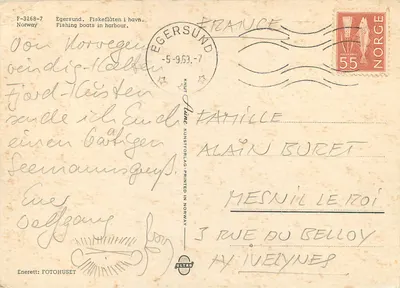 F-3168-7
Norway
Egersund. Fiskeflåten i havn.
Fishing boats in harbour.
Von Norwegens
windig-kalten
Fjord-Küsten
sende ich Euch
einen bärtigen
Seemannsgruß.
Euer
Wolfgang
Enerett: FOTOHUSET
KUNSTFORLAG · PRINTED IN NORWAY
EGERSUND
-5-9.63.-7
NORGE
55
FRANCE
FAMILLE
ALAIN BURET
MESNIL LE ROI
3 RUE DU BELLOY
YVELYNES